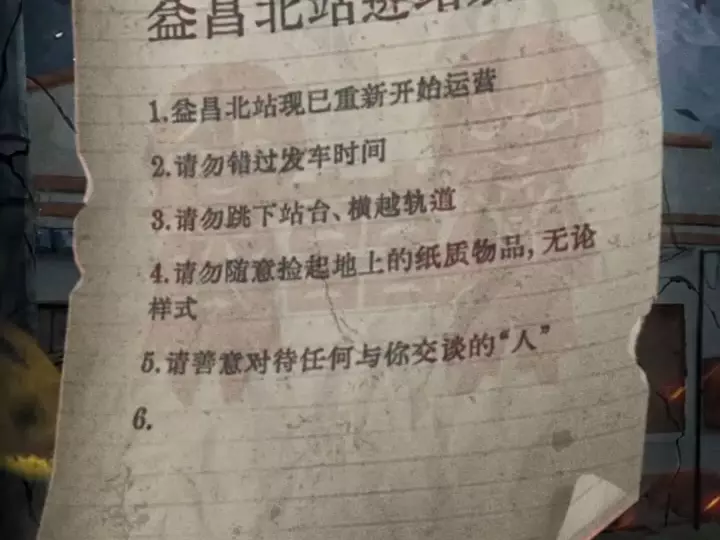 益昌北站进站须
1.益昌北站现已重新开始运营
2.请勿错过发车时间
3.请勿跳下站台、横越轨道
4.请勿随意捡起地上的纸质物品，无论
样式
5.请善意对待任何与你交谈的“人”
6.